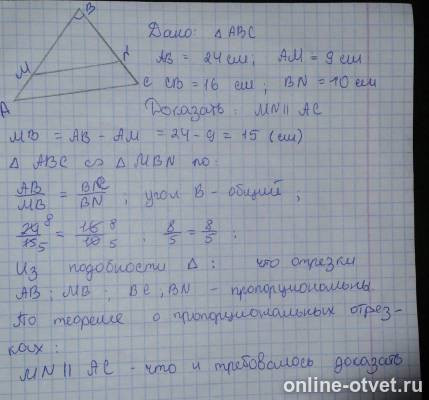 B
M
N
A
C
Дано: △ ABC
AB = 24 см, AM = 9 см
CB = 16 см; BN = 10 см
Доказать: MN || AC
MB = AB - AM = 24 - 9 = 15 (см)
△ ABC ∽ △ MBN по:
AB/MB = BC/BN, угол B - общий;
24/15 = 16/10; 8/5 = 8/5;
Из подобности △: что отрезки
AB; MB; BC, BN - пропорциональны.
По теореме о пропорциональных отрез-
ках:
MN || AC - что и требовалось доказать
online-otvet.ru